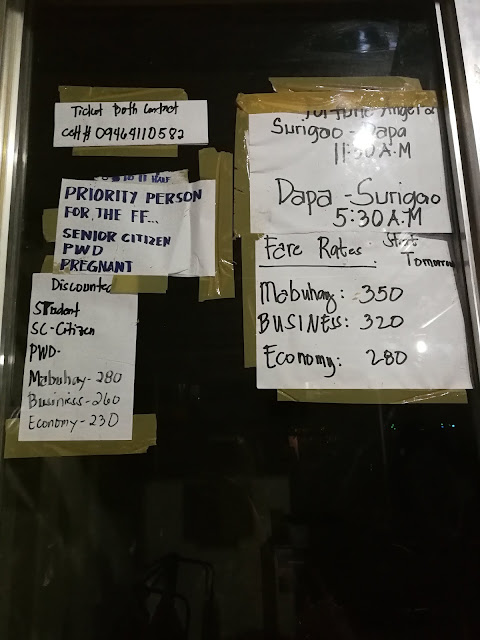 Ticket Both Contact
Cell# 09464110582
PRIORITY PERSON
FOR THE FF...
SENIOR CITIZEN
PWD
PREGNANT
Discounted
Student
SC-Citizen
PWD-
Mabuhay-280
Business-260
Economy-230
Surigao-Dapa
11:30 A.M
Dapa-Surigao
5:30 A.M
Fare Rates. Start
Tomorrow
Mabuhay: 350
BUSINESS: 320
Economy: 280